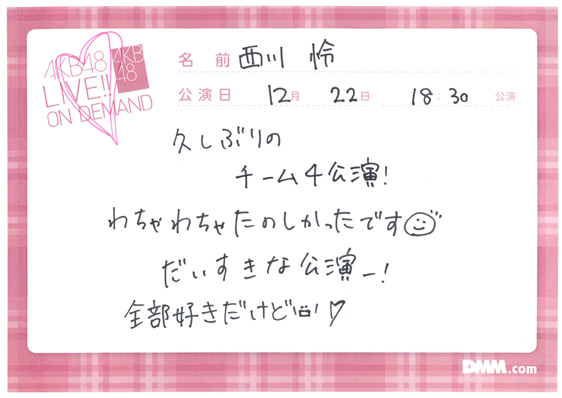 AKB48
LIVE!!
ON DEMAND
AKB
48
名前 西川 怜
公演日 12月 22日 18:30 公演
久しぶりの
チーム4公演!
わちゃわちゃたのしかったです
だいすきな公演ー!
全部好きだけど♡
DMM.com